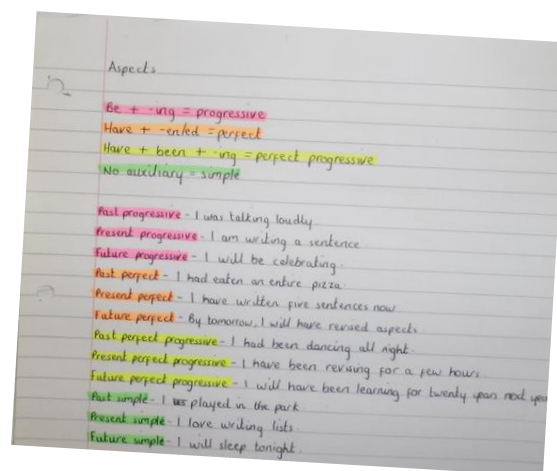 Aspects
Be + -ing = progressive
Have + -en/ed = perfect
Have + been + -ing = perfect progressive
No auxiliary = simple
Past progressive - I was talking loudly
Present progressive - I am writing a sentence.
Future progressive - I will be celebrating.
Past perfect - I had eaten an entire pizza.
Present perfect - I have written five sentences now
Future perfect - By tomorrow, I will have revised aspects.
Past perfect progressive - I had been dancing all night.
Present perfect progressive - I have been revising for a few hours
Future perfect progressive - I will have been learning for twenty years next year
Past simple - I played in the park
Present simple - I love writing lists.
Future simple - I will sleep tonight.